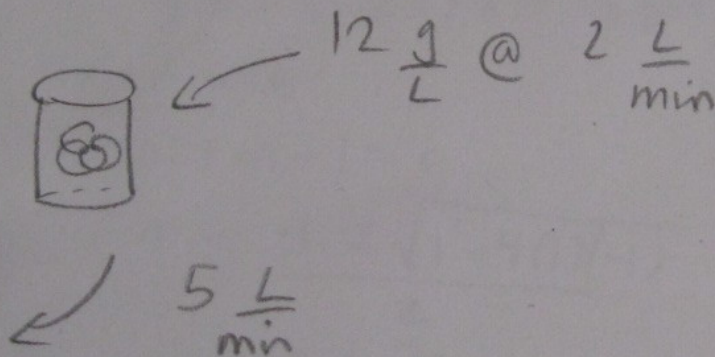 12 g/L @ 2 L/min
5 L/min